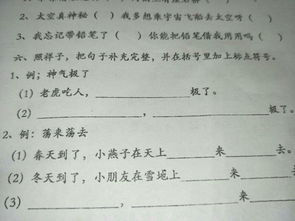 2、太空真神秘（ ）我多想乘宇宙飞船去太空呀（ ）
3、我忘记带铅笔了（ ）你能把铅笔借我用用吗（ ）
六、照样子，把句子补充完整，并在括号里加上标点符号。
1、例；神气极了
（1）老虎吃人，__________极了。
（2）__________________极了。
2、例：荡来荡去
（1）春天到了，小燕子在天上______来______去。
（2）冬天到了，小朋友在雪地上______来______
（3）__________，__________